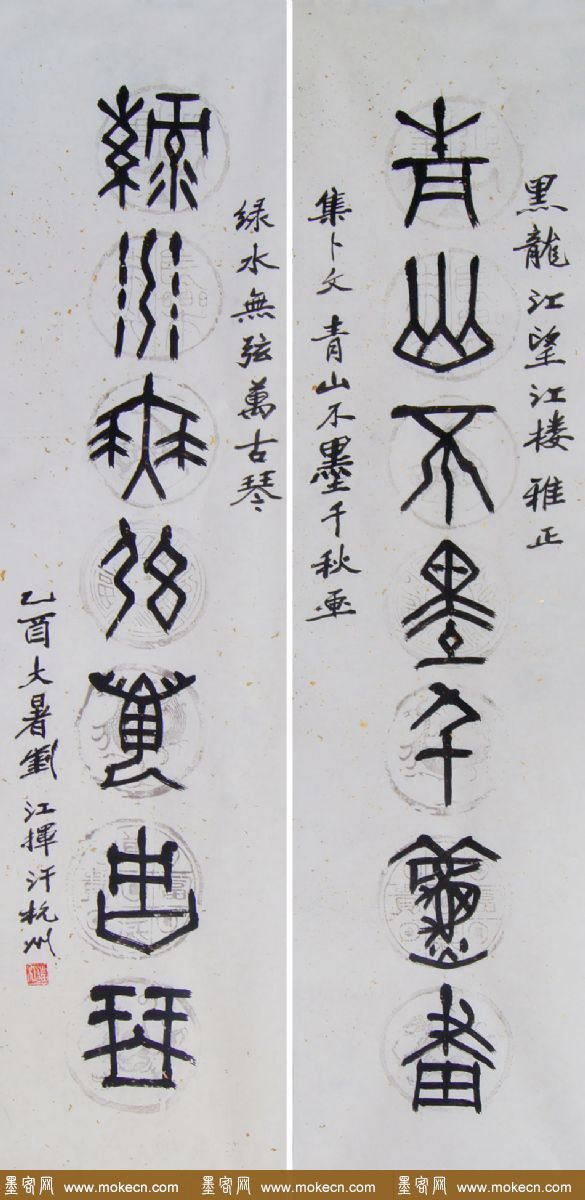 黑龍江望江楼雅正
青山不墨千秋畫
集卜文 青山不墨千秋画
绿水無弦萬古琴
綠水無弦萬古琴
乙酉大暑劉江揮汗杭州
墨客网 www.mokecn.com 墨客网 www.mokecn.com 墨客网 www.mokecn.com